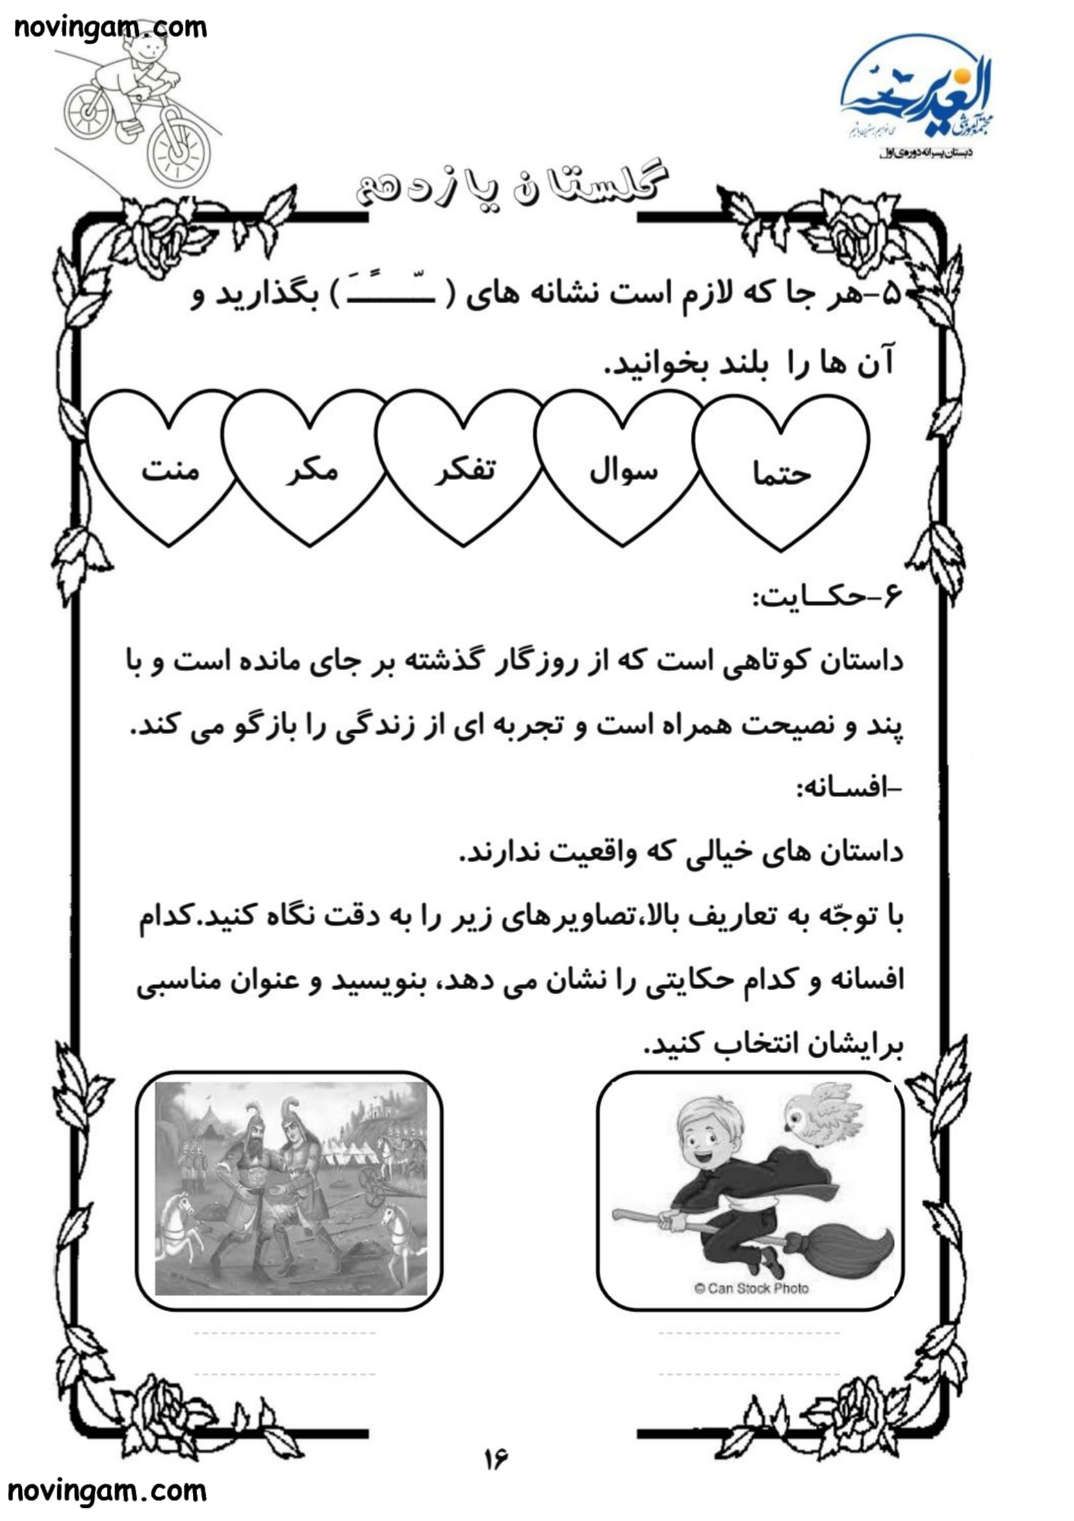 novingam.com
الغدیر
مجتمع آموزشی
دبستان پسرانه دوره‌ی اول
گلستان یازدهم
۵-هر جا که لازم است نشانه های ( ـَـًـّـ ) بگذارید و
آن ها را بلند بخوانید.
حتما سوال تفکر مکر منت
۶-حکـایت:
داستان کوتاهی است که از روزگار گذشته بر جای مانده است و با
پند و نصیحت همراه است و تجربه ای از زندگی را بازگو می کند.
-افسـانه:
داستان های خیالی که واقعیت ندارند.
با توجّه به تعاریف بالا،تصاویرهای زیر را به دقت نگاه کنید.کدام
افسانه و کدام حکایتی را نشان می دهد، بنویسید و عنوان مناسبی
برایشان انتخاب کنید.
© Can Stock Photo
۱۶
novingam.com